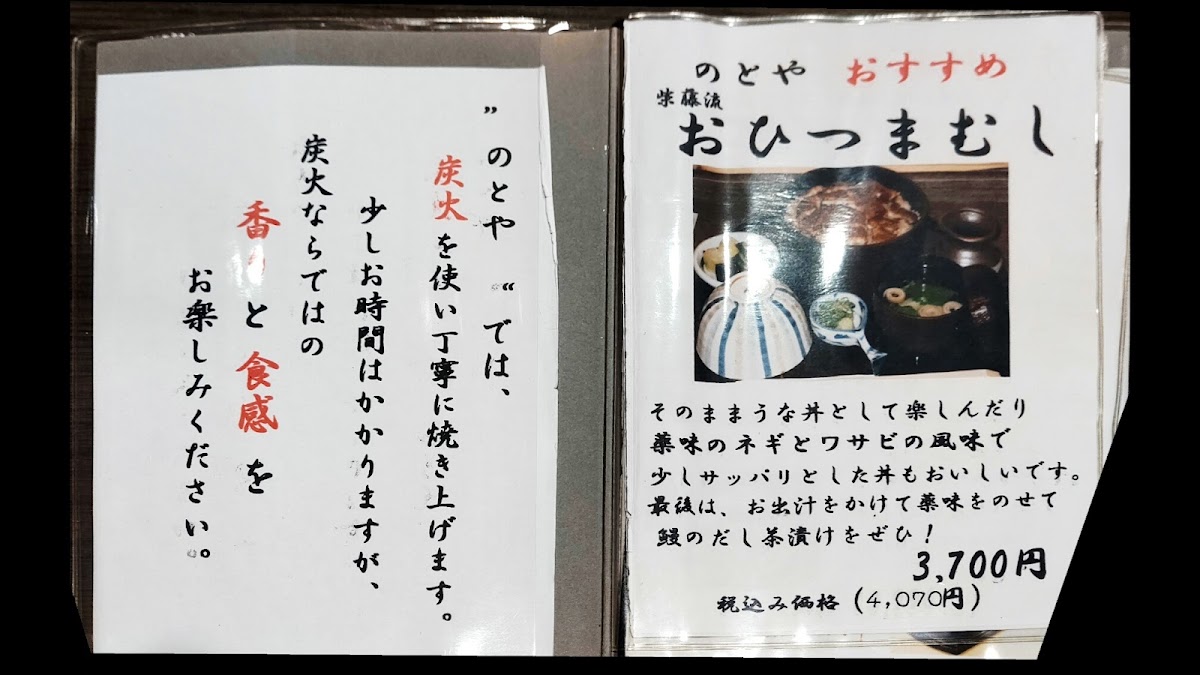 ”のとや“では、
炭火を使い丁寧に焼き上げます。
少しお時間はかかりますが、
炭火ならではの
香りと食感を
お楽しみください。
のとや おすすめ
柴藤流
おひつまむし
そのままうな丼として楽しんだり
薬味のネギとワサビの風味で
少しサッパリとした丼もおいしいです。
最後は、お出汁をかけて薬味をのせて
鰻のだし茶漬けをぜひ！
3,700円
税込み価格(4,070円)